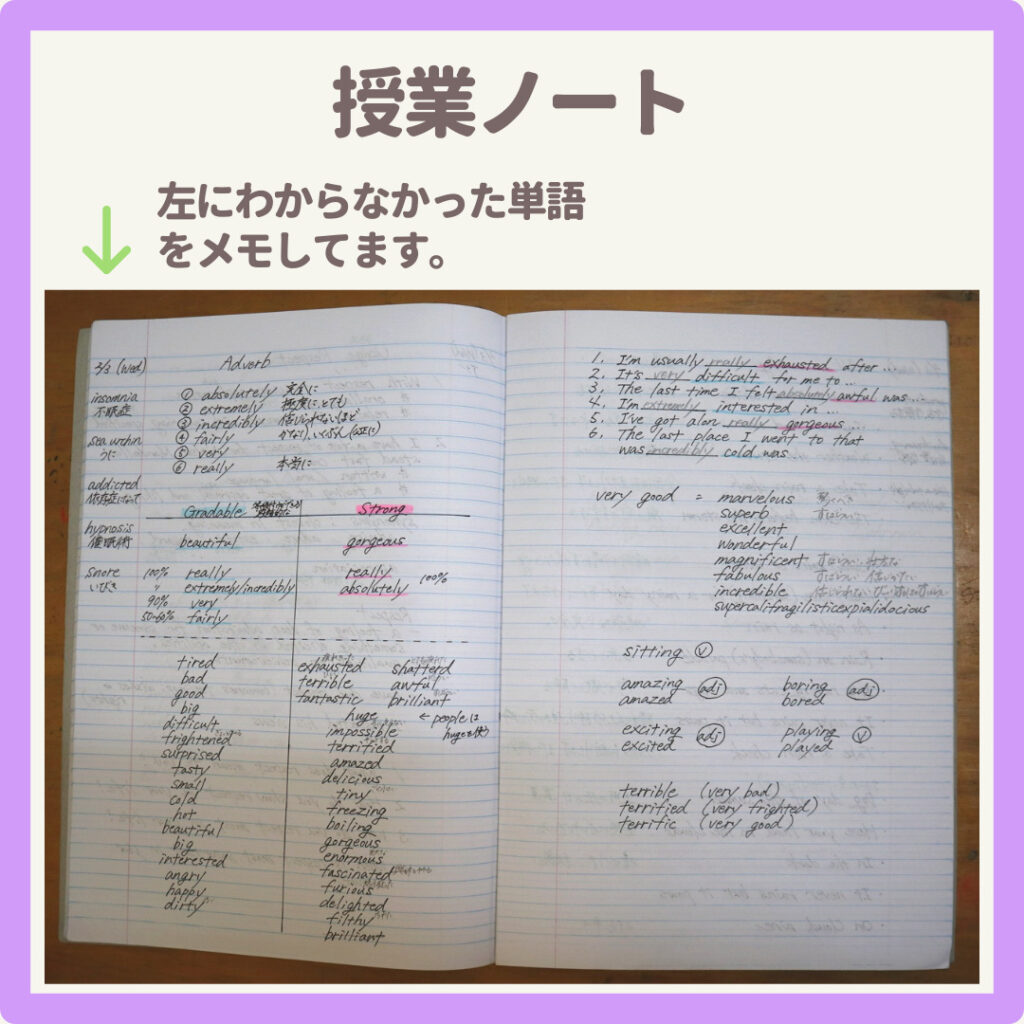 授業ノート
左にわからなかった単語
をメモしてます。
2/3 (Wed)
Adverb
insomnia
不眠症
sea urchin
うに
addicted
hypnosis
催眠術
snore
いびき
① absolutely 完全に
② extremely 極度に,とても
③ incredibly 信じられないほど
④ fairly かなり,
⑤ very
⑥ really 本当に
Gradable Strong
beautiful gorgeous
100% really really
〃 extremely/incredibly absolutely 100%
90% very
50-60% fairly
tired exhausted shatterd
bad terrible awful
good fantastic brilliant
big huge ← peopleには
hugeを使う
difficult impossible
frightened terrified
surprised amazed
tasty delicious
small tiny
cold freezing
hot boiling
beautiful gorgeous
big enormous
interested fascinated
angry furious
happy delighted
dirty filthy
brilliant
1. I'm usually really exhausted after ...
2. It's very difficult for me to ...
3. The last time I felt absolutely awful was ...
4. I'm extremely interested in ...
5. I've got alon really gorgeous ...
6. The last place I went to that
was incredibly cold was ...
very good = marvelous
superb
excellent
wonderful
magnificent
fabulous
incredible
supercalifragilisticexpialidocious
sitting Ⓥ
amazing adj boring adj
amazed bored
exciting adj playing Ⓥ
excited played
terrible (very bad)
terrified (very frighted)
terrific (very good)